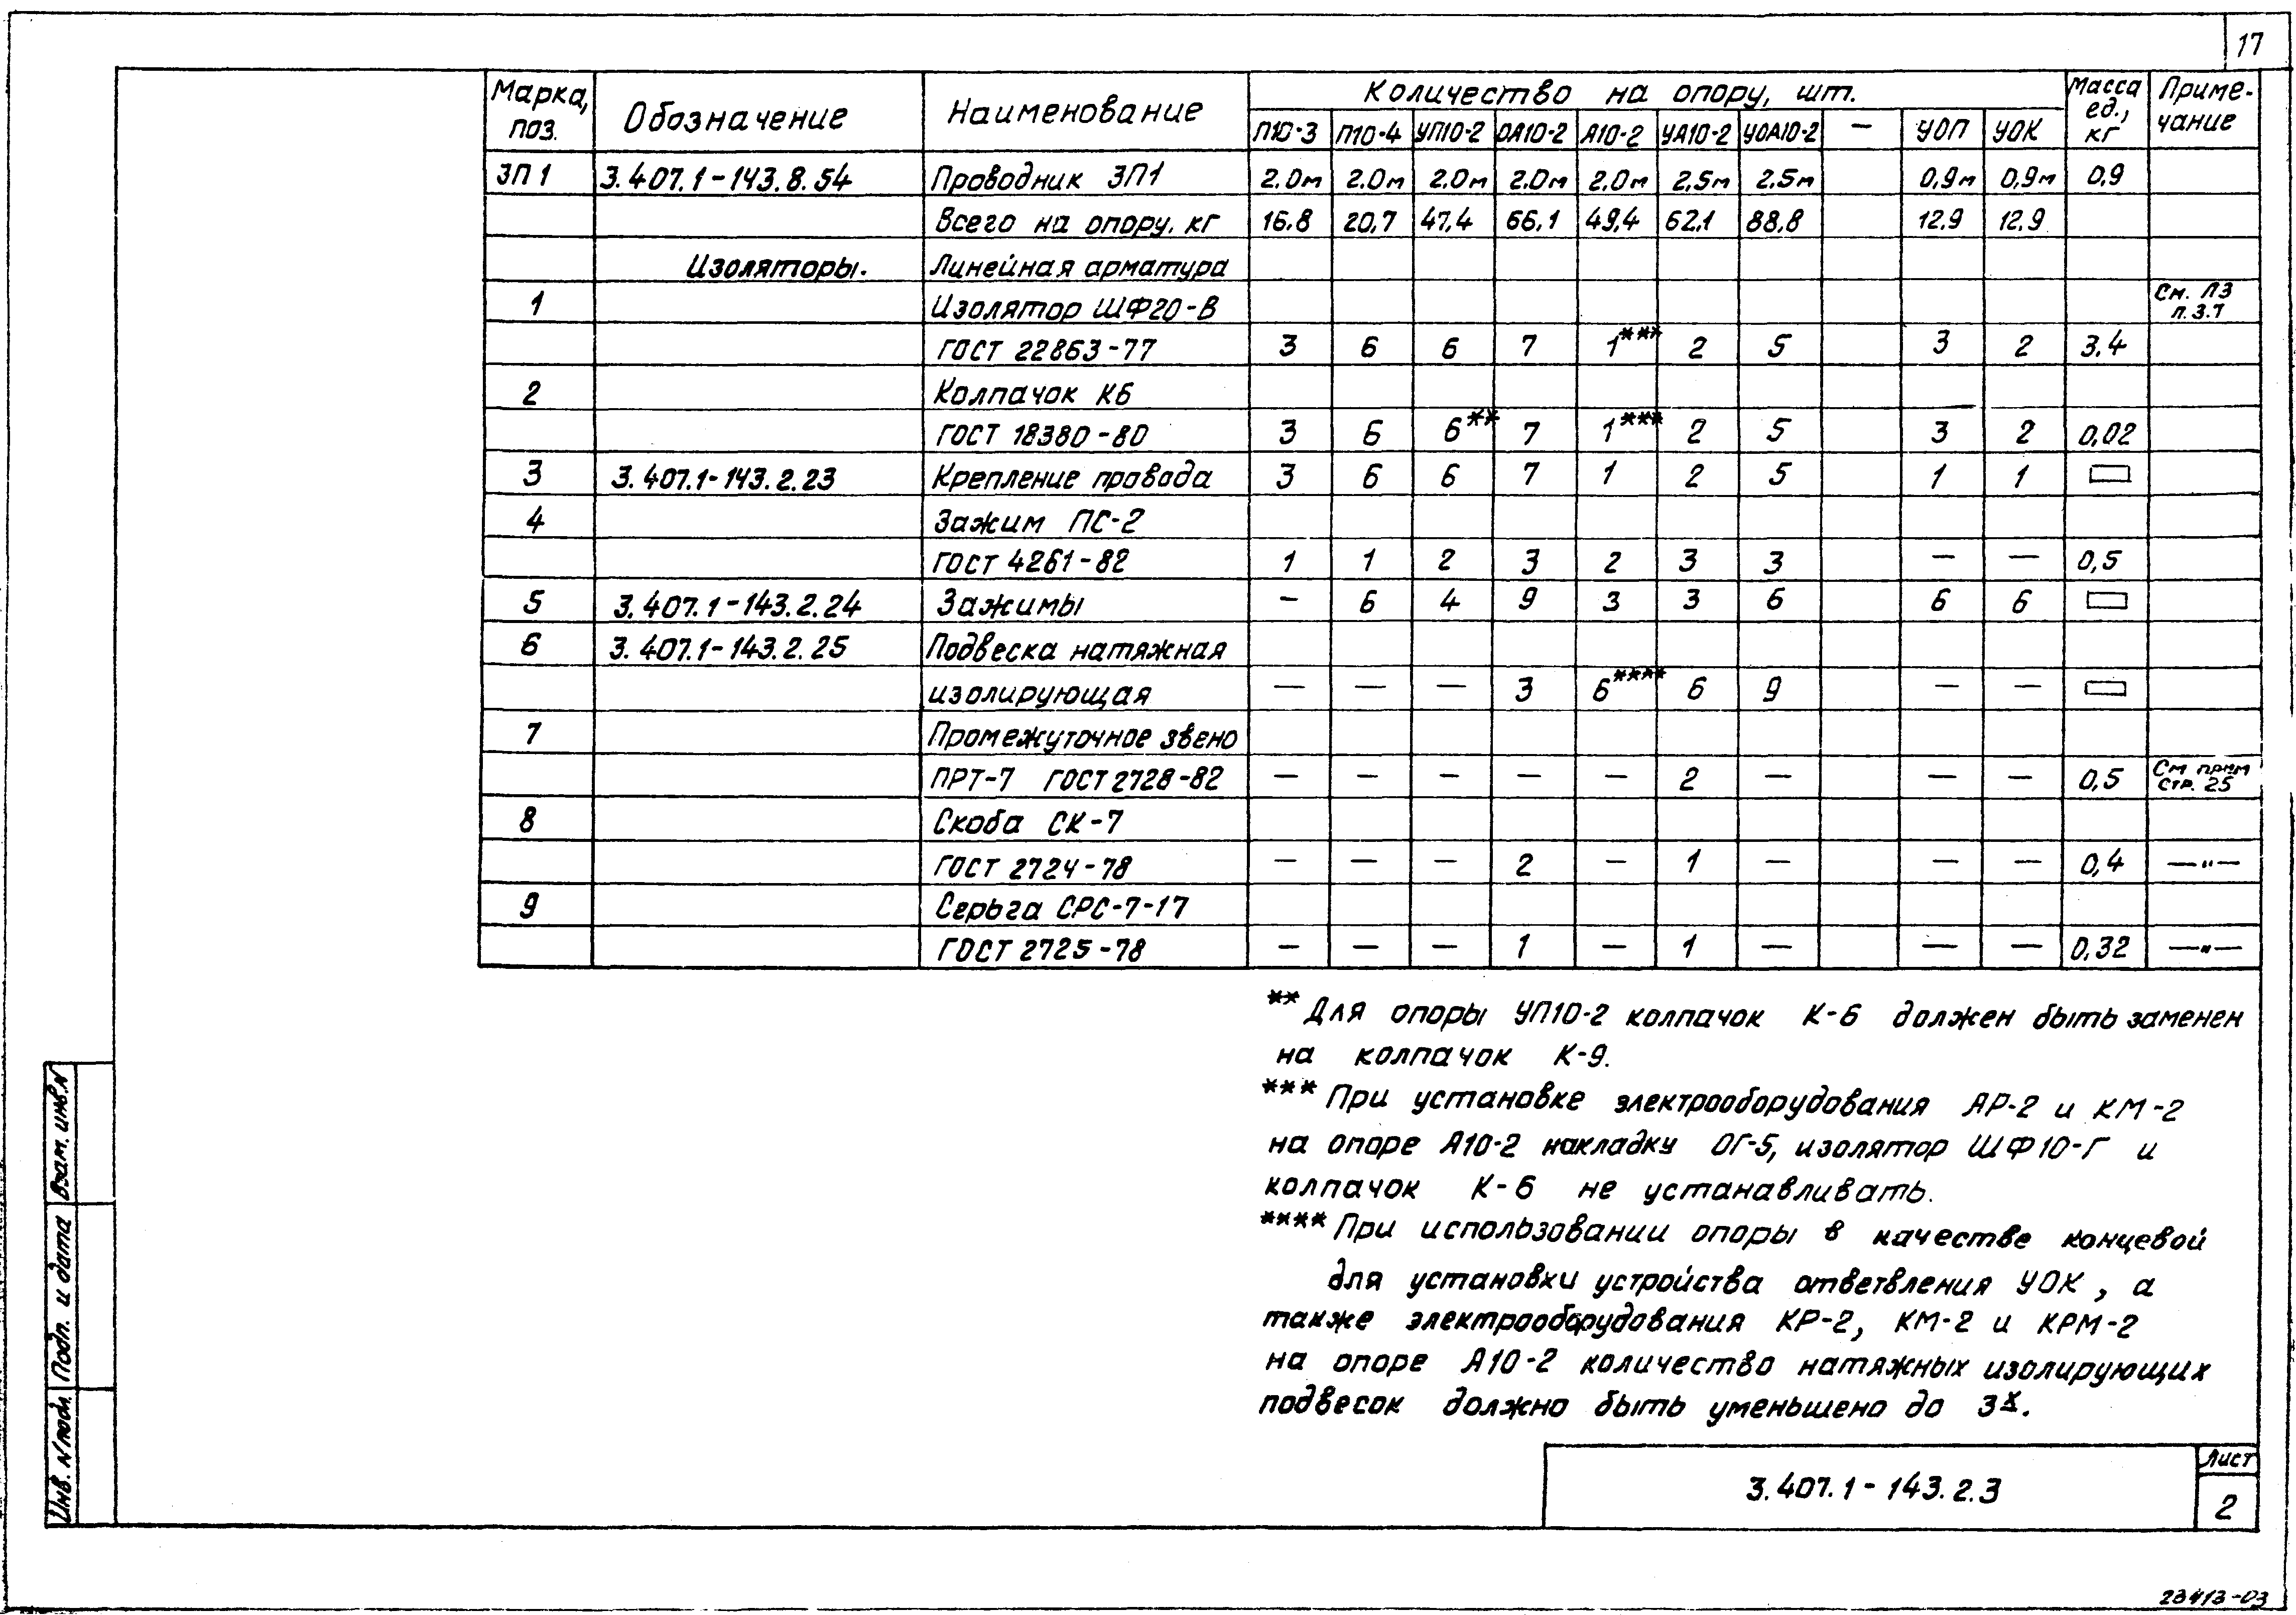 17
Марка, поз. Обозначение Наименование Количество на опору, шт. Масса ед., кг Приме-чание
П10-3 П10-4 УП10-2 ОА10-2 А10-2 УА10-2 УОА10-2 — УОП УОК
ЗП1 3.407.1-143.8.54 Проводник ЗП1 2.0м 2.0м 2.0м 2.0м 2.0м 2,5м 2.5м 0,9м 0,9м 0,9
Всего на опору, кг 16.8 20,7 47,4 66,1 49,4 62,1 88,8 12.9 12.9
Изоляторы. Линейная арматура
1 Изолятор ШФ20-В См. ПЗ п.3.7
ГОСТ 22863-77 3 6 6 7 1*** 2 5 3 2 3.4
2 Колпачок К6
ГОСТ 18380-80 3 6 6** 7 1*** 2 5 3 2 0,02
3 3.407.1-143.2.23 Крепление провода 3 6 6 7 1 2 5 1 1
4 Зажим ПС-2
ГОСТ 4261-82 1 1 2 3 2 3 3 — — 0,5
5 3.407.1-143.2.24 Зажимы - 6 4 9 3 3 6 6 6
6 3.407.1-143.2.25 Подвеска натяжная
изолирующая — — — 3 6**** 6 9 — —
7 Промежуточное звено
ПРТ-7 ГОСТ 2728-82 — — — — — 2 — — — 0,5 См прим стр. 25
8 Скоба СК-7
ГОСТ 2724-78 — — — 2 — 1 — — — 0,4 —"—
9 Серьга СРС-7-17
ГОСТ 2725-78 — — — 1 — 1 — — — 0,32 —"—
** Для опоры УП10-2 колпачок К-6 должен быть заменен
на колпачок К-9.
*** При установке электрооборудования АР-2 и КМ-2
на опоре А10-2 накладку ОГ-5, изолятор ШФ10-Г и
колпачок К-6 не устанавливать.
**** При использовании опоры в качестве концевой
для установки устройства ответвления УОК, а
также электрооборудования КР-2, КМ-2 и КРМ-2
на опоре А10-2 количество натяжных изолирующих
подвесок должно быть уменьшено до 3х.
Инв. N подл. Подп. и дата Взам. инв. N
3.407.1-143.2.3
Лист
2
23413-03